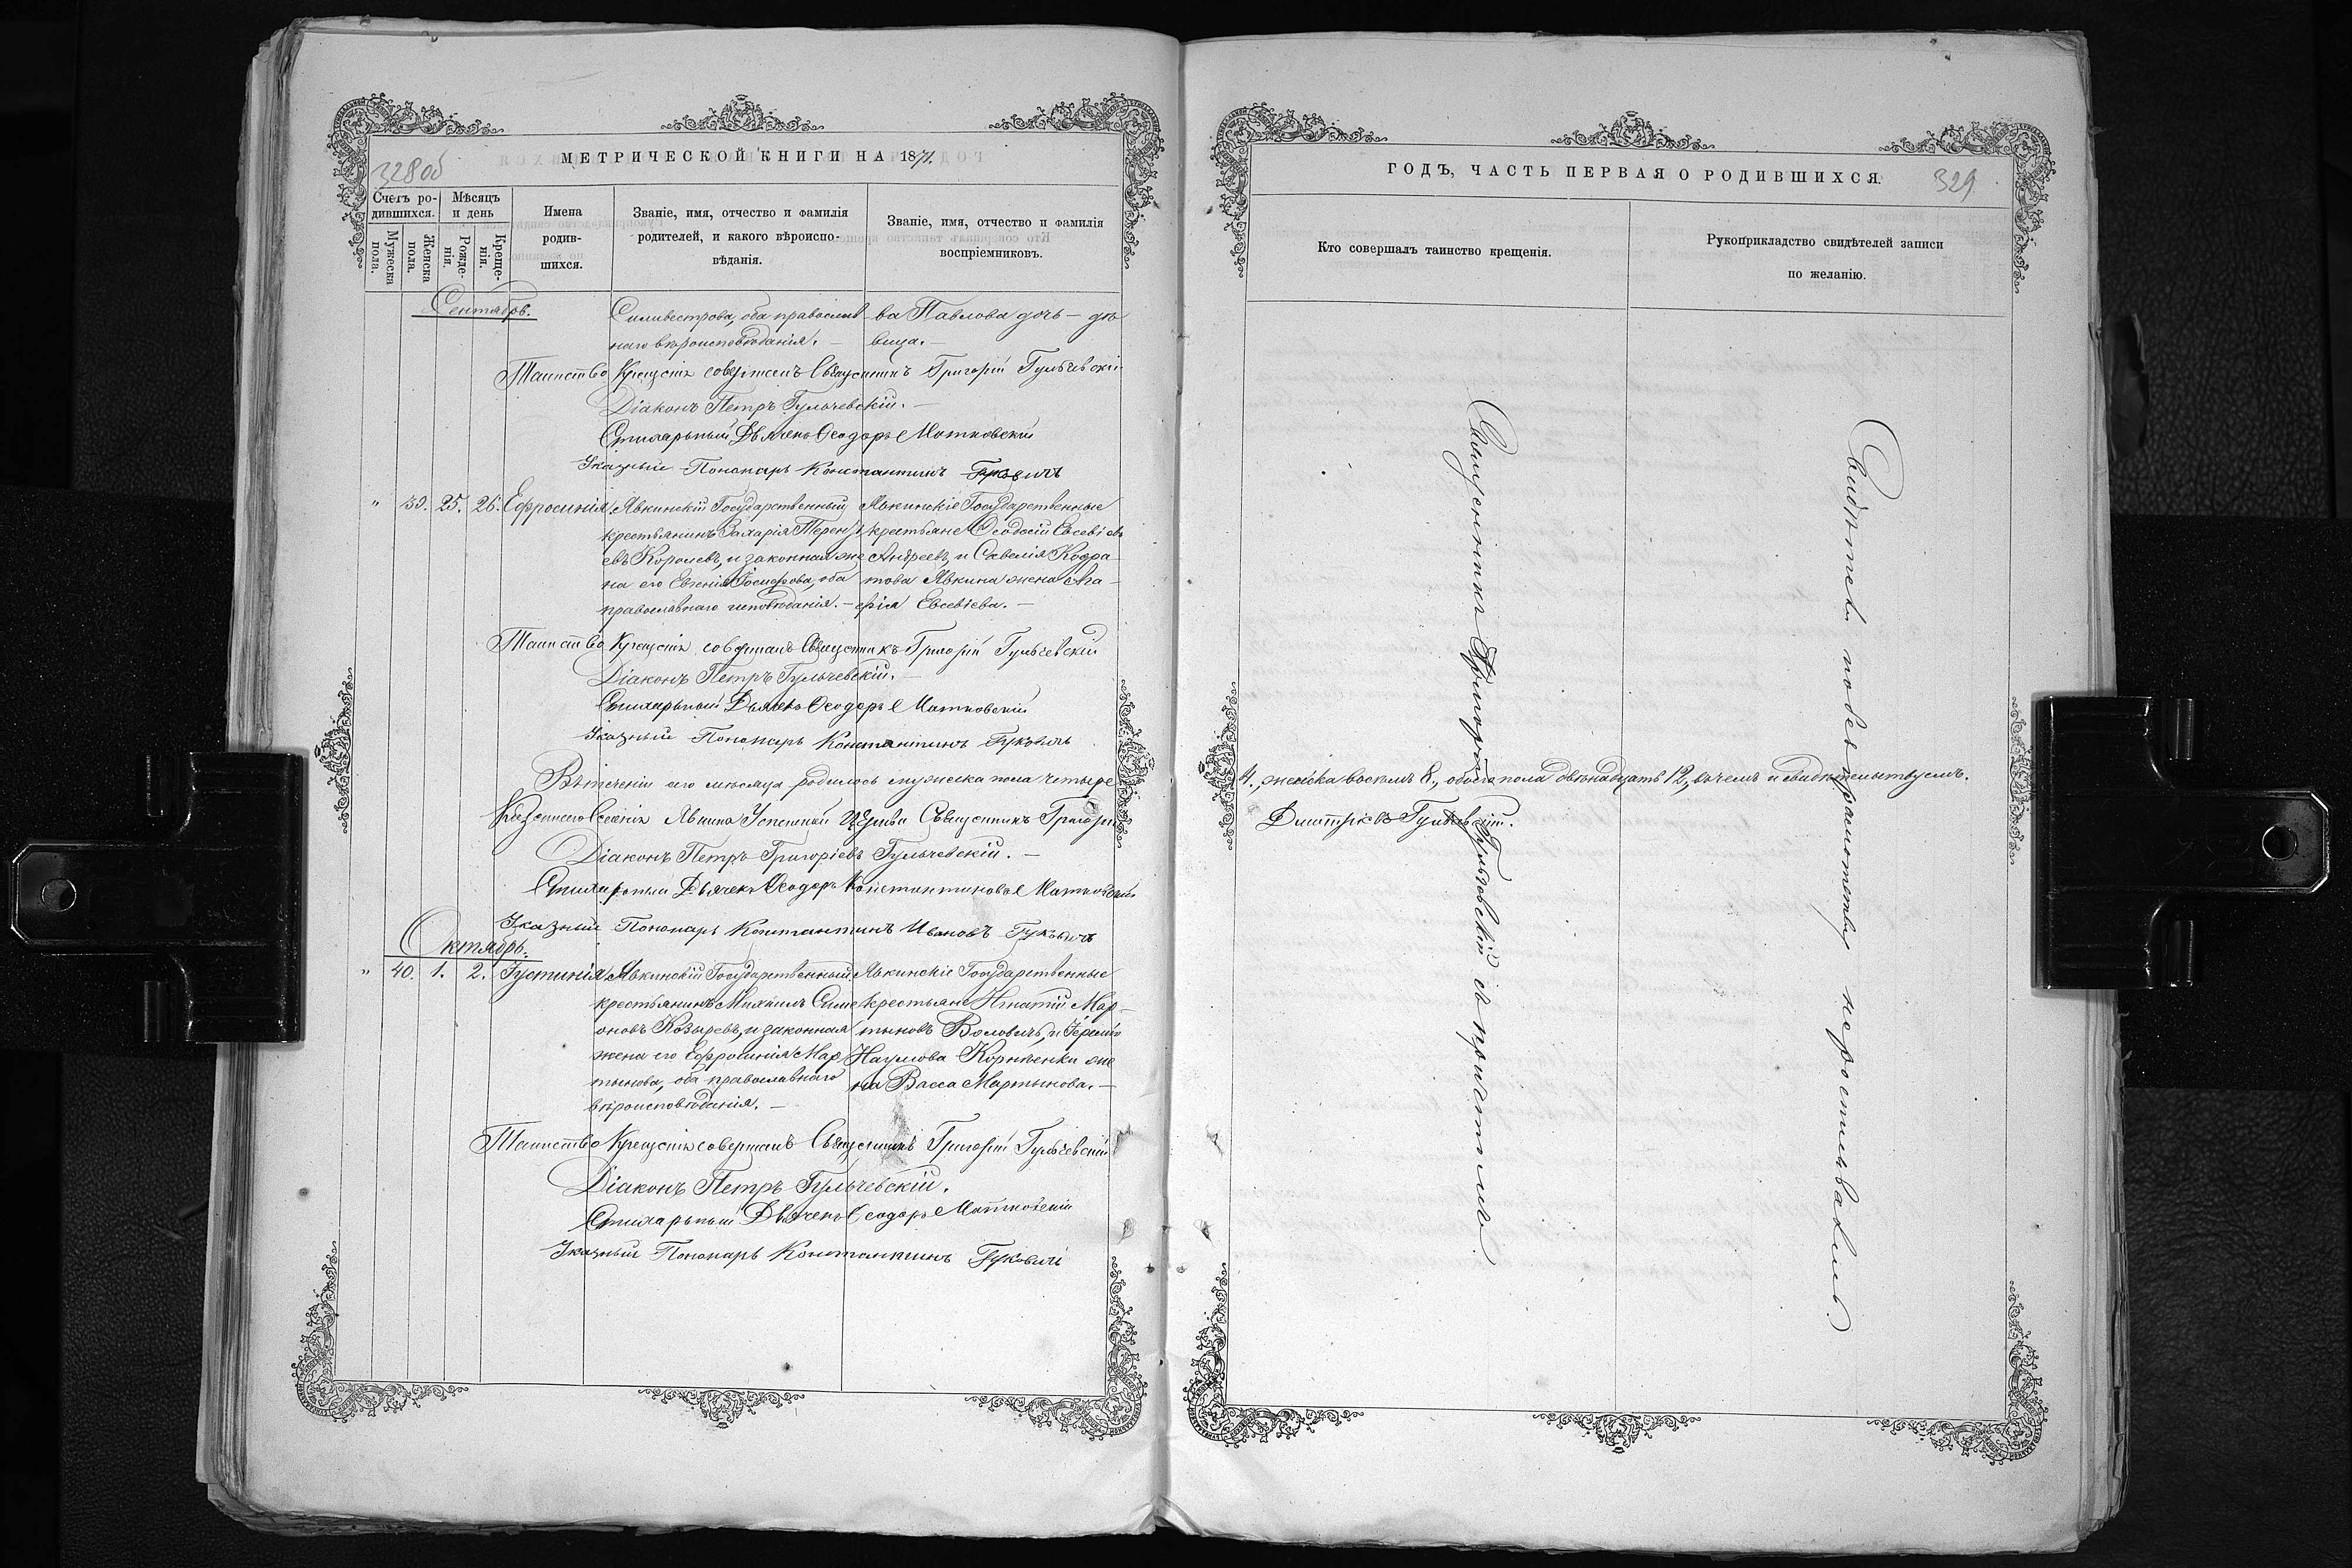 328 об
МЕТРИЧЕСКОЙ КНИГИ НА 1871.
Счетъ ро-
дившихся.
Мужеска пола.
Женска пола.
Мѣсяцъ
и день
Рожде-
нія.
Креще-
нія.
Имена
родив-
шихся.
Званіе, имя, отчество и фамилія
родителей, и какого вѣроиспо-
вѣданія.
Званіе, имя, отчество и фамилія
воспріемниковъ.
Сентябрь.
Силивестрова, оба православ
наго вѣроисповѣданія. —
ва Павлова дочь — дѣ
вица. —
Таинство Крещенія совершилъ Священникъ Григорій Гульчевскій
Діаконъ Петръ Гульчевскій. —
Стихарный Дьячекъ Ѳеодоръ Матковскій
Указный Пономарь Константинъ Гуковичъ
" 39. 25. 26. Ефросинія
Явкинскій Государственный
крестьянинъ Захарія Терентъ
евъ Королевъ, и законная же
на его Евгенія Іосифова, оба
православнаго исповѣданія. —
Явкинскіе Государственные
крестьяне Ѳеодосій Евсевіевъ
Андреевъ, и Савелія Кодра-
това Явкина жена Ага-
фія Евсевіева. —
Таинство Крещенія совершилъ Священникъ Григорій Гульчевскій
Діаконъ Петръ Гульчевскій. —
Стихарный Дьячекъ Ѳеодоръ Матковскій
Указный Пономарь Константинъ Гуковичъ
Въ теченіи сего мѣсяца родилось мужеска пола четыре
Селенія Явкина Успенской Церкви Священникъ Григорій
Діаконъ Петръ Григоріевъ Гульчевскій. —
Стихарный Дьячекъ Ѳеодоръ Константиновъ Матковскій
Указный Пономарь Константинъ Ивановъ Гуковичъ
Октябрь.
" 40. 1. 2. Іустинія
Явкинскій Государственный
крестьянинъ Михаилъ Симе
оновъ Козыревъ, и законная
жена его Ефросинія Мар
тынова, оба православнаго
вѣроисповѣданія. —
Явкинскіе Государственные
крестьяне Игнатій Мар-
тыновъ Воловичъ, и Іеремія
Наумова Корніенки же
на Васса Мартынова. —
Таинство Крещенія совершилъ Священникъ Григорій Гульчевскій
Діаконъ Петръ Гульчевскій.
Стихарный Дьячекъ Ѳеодоръ Матковскій
Указный Пономарь Константинъ Гуковичъ
ГОДЪ, ЧАСТЬ ПЕРВАЯ О РОДИВШИХСЯ.
329
Кто совершалъ таинство крещенія.
Рукоприкладство свидѣтелей записи
по желанію.
Священникъ Григорій Гульчевскій съ причтомъ.
Свидѣтели по безграмотству не росписывались.
4., женска восемь 8., обоего пола двѣнадцать 12., въ чемъ и свидѣтельствуемъ.
Дмитріевъ Гульчевскій.